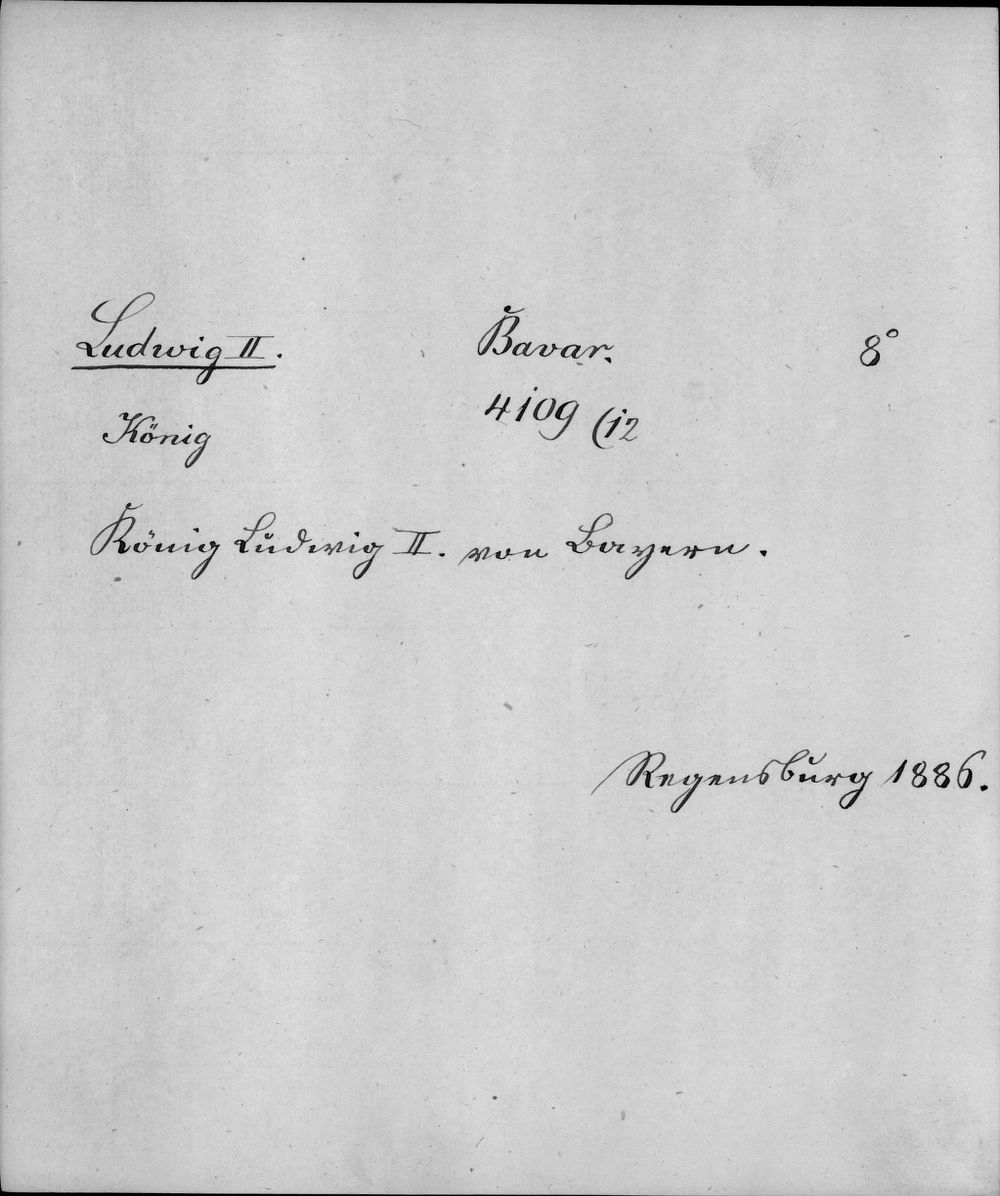 Ludwig II. Bavar. 8°
König 4109 (12
König Ludwig II. von Bayern.
Regensburg 1886.